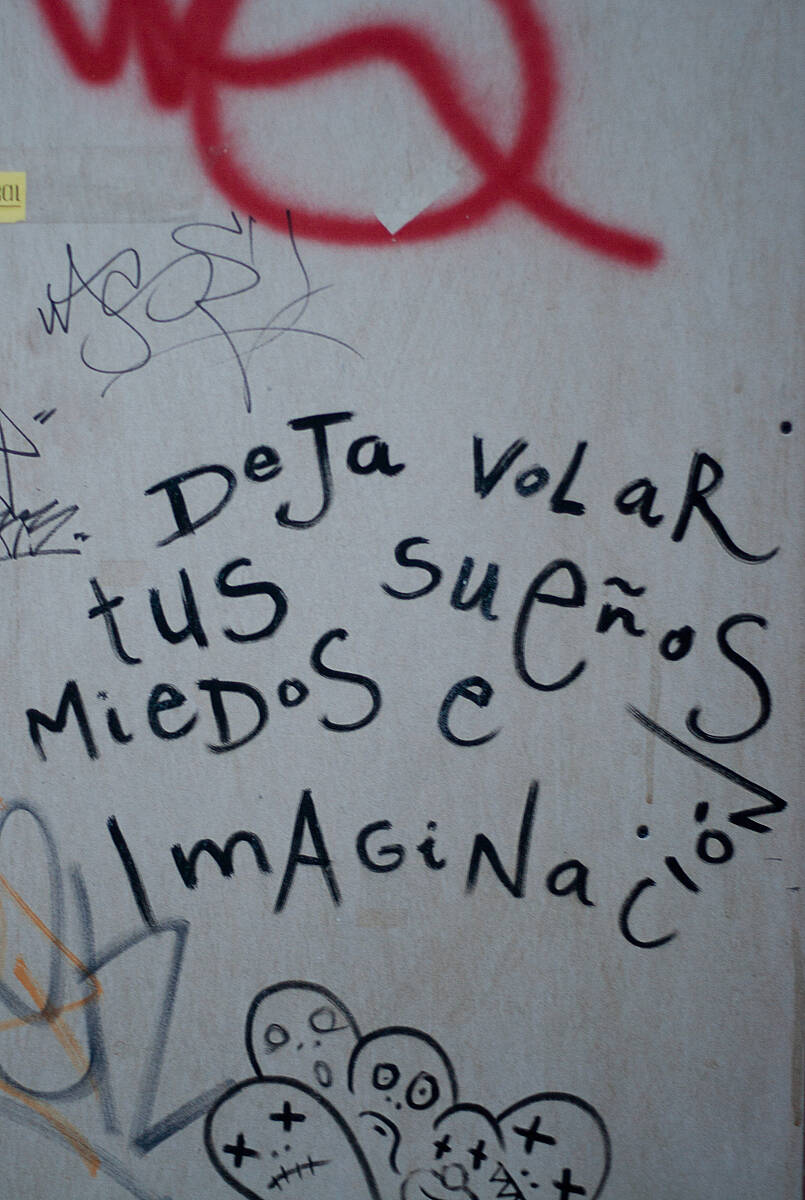 DeJa VoLaR
tus sueños
MieDoS e
ImAGiNaCióN